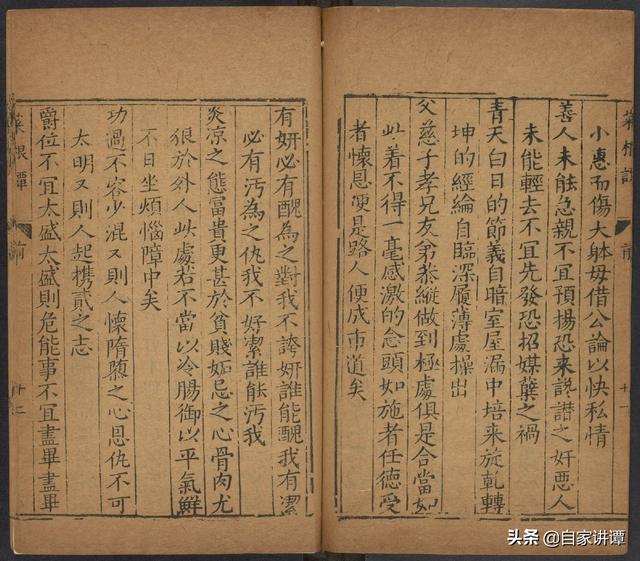 菜根譚
前
十一
小惠而傷大躰毋借公論以快私情
善人未能急親不宜預揚恐来讒譛之奸惡人
未能輕去不宜先發恐招媒蘖之禍
青天白日的節義自暗室屋漏中培来旋乾轉
坤的經綸自臨深履薄處操出
父慈子孝兄友弟恭縱做到極處俱是合當如
此着不得一毫感激的念頭如施者任德受
者懷恩便是路人便成市道矣
有妍必有醜為之對我不誇妍誰能醜我有潔
必有汚為之仇我不好潔誰能汚我
炎凉之態富貴更甚於貧賤妬忌之心骨肉尤
狠於外人此處若不當以冷腸御以平氣鮮
不日坐煩惱障中矣
功過不容少混又則人懷隋隳之心恩仇不可
太明又則人起携貳之志
爵位不宜太盛太盛則危能事不宜盡畢盡畢
菜根譚
前
十二
头条 @自家讲谭